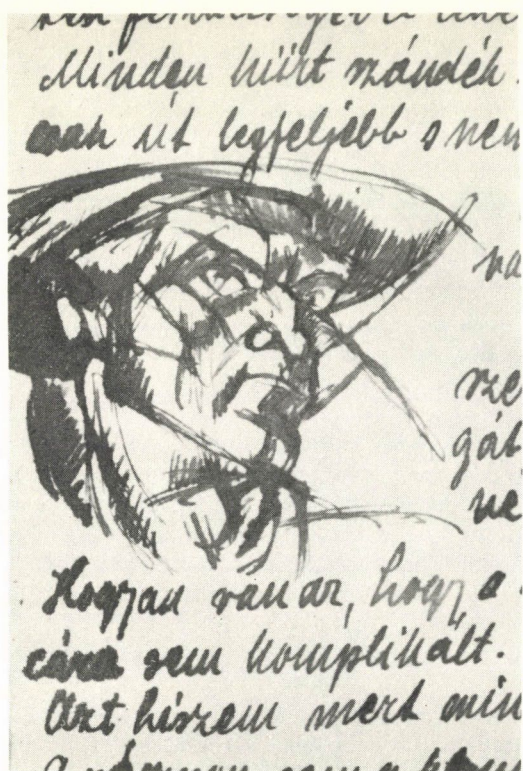 Minden hiírt szándék
csak út legfeljebb s nem
va
sze
gát
ne
Hogyan van az, hogy a
cára sem komplikált.
Azt hiszem mert min